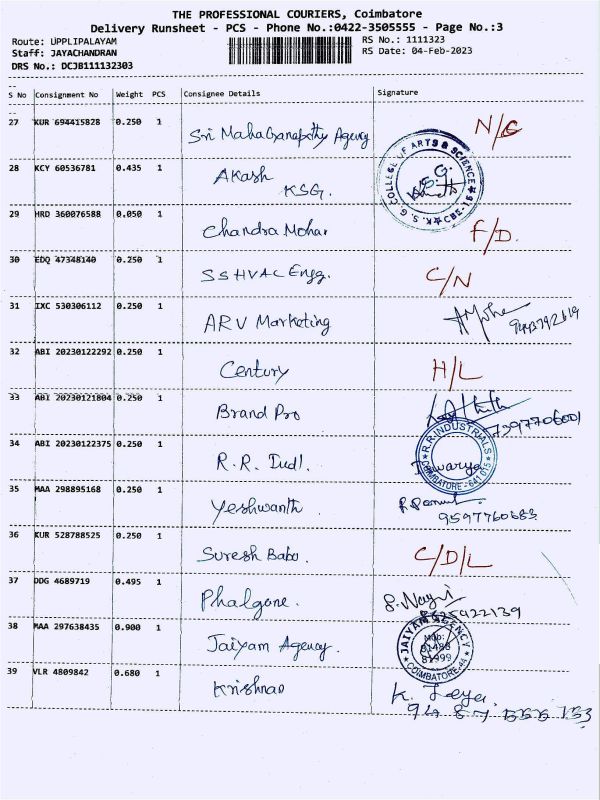 THE PROFESSIONAL COURIERS, Coimbatore
Delivery Runsheet - PCS - Phone No.:0422-3505555 - Page No.:3
Route: UPPLIPALAYAM RS No.: 1111323
Staff: JAYACHANDRAN RS Date: 04-Feb-2023
DRS No.: DCJB111132303
S No Consignment No Weight PCS Consignee Details Signature
27 KUR 694415828 0.250 1 Sri MahaGanapathy Agency N/C
28 KCY 60536781 0.435 1 Akash
KSG.
K.S.G. COLLEGE OF ARTS & SCIENCE CBE-15
29 HRD 360076588 0.050 1 Chandra Mohan F/D.
30 EDQ 47348140 0.250 1 SSHVAC Engg. C/N
31 IXC 530306112 0.250 1 ARV Marketing
32 ABI 20230122292 0.250 1 Century H/L
33 ABI 20230121804 0.250 1 Brand Pro 7397706001
34 ABI 20230122375 0.250 1 R.R. Indl.
R.R. INDUSTRIALS COIMBATORE - 641 015
35 MAA 298895168 0.250 1 Yeshwanth.
9597760683
36 KUR 528788525 0.250 1 Suresh Babu. C/D/L
37 DDG 4689719 0.495 1 Phalgone.
38 MAA 297638435 0.900 1 Jaiyam Agency. JAIYAM AGENCY Mob: COIMBATORE-44
39 VLR 4809842 0.680 1 Krishnao K.